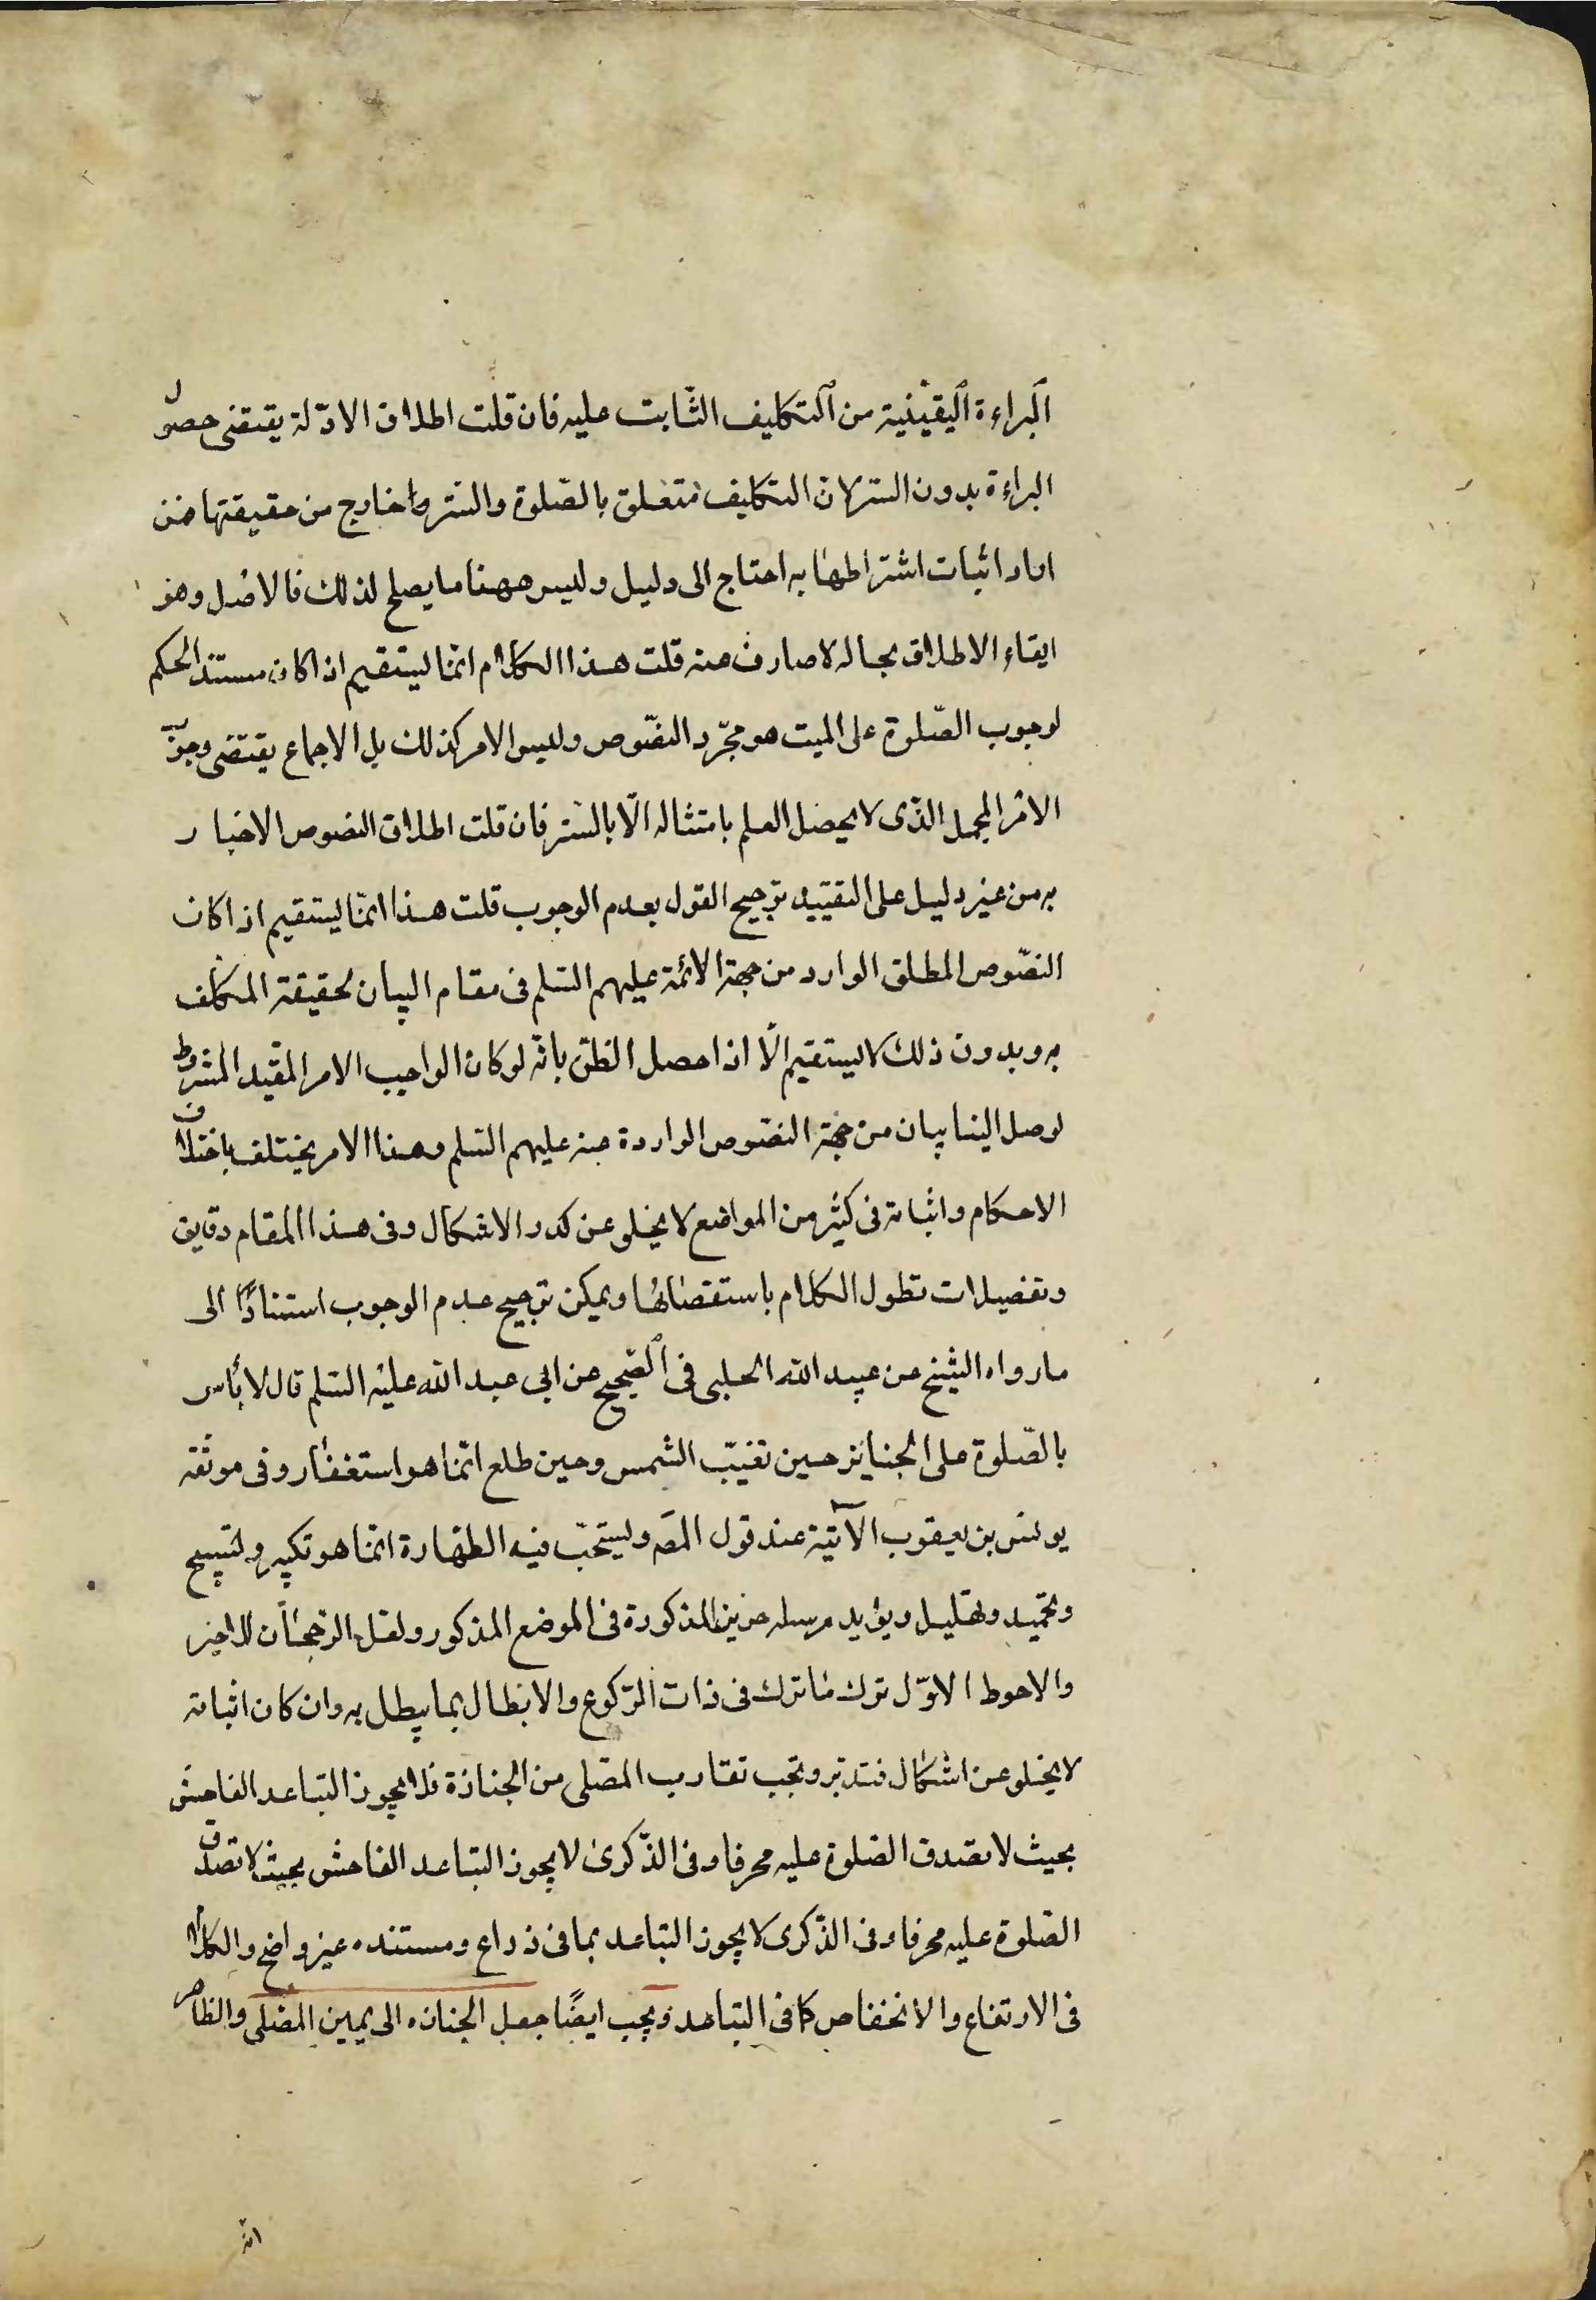 البراءة اليقينية من التكليف الثابت عليه فان قلت اطلاق الادلة يقتضى حصول
البراءة بدون الستر لان التكليف متعلق بالصلوة والستر واخارج من حقيقتها فمن
اراد اثبات اشتراطها به احتاج الى دليل وليس ههنا ما يصلح لذلك فالاصل وهو
ابقاء الاطلاق بحاله لا صارف عنه قلت هذا الكلام انما يستقيم اذا كان مستند الحكم
لوجوب الصلوة على الميت هو مجرد النصوص وليس الامر كذلك بل الاجماع يقتضى وجوب
الامر المجمل الذى لا يحصل العلم بامتثاله الا بالستر فان قلت اطلاق النصوص الاخبار
به من غير دليل على التقييد ترجيح القول بعدم الوجوب قلت هذا انما يستقيم اذا كان
النصوص المطلق الوارد من جهة الائمة عليهم السلم فى مقام البيان لحقيقة المكلف
به وبدون ذلك لا يستقيم الا اذا حصل الظن بانه لو كان الواجب الامر المقيد المشروط
لوصل الينا بيان من جهة النصوص الواردة منه عليهم السلم وهذا الامر يختلف باختلاف
الاحكام واثباته فى كثير من المواضع لا يخلو عن كدر والاشكال وفى هذا المقام دقايق
وتفصيلات تطول الكلام باستقصائها ويمكن ترجيح عدم الوجوب استنادًا الى
ما رواه الشيخ عن عبيد الله الحلبى فى الصحيح عن ابى عبد الله عليه السلم قال لا بأس
بالصلوة على الجنايز حين تغيب الشمس وحين طلع انما هو استغفار وفى موثقه
يونس بن يعقوب الآتية عند قول المصَ ويستحب فيه الطهارة انما هو تكبير وتسبيح
وتحميد وتهليل ويؤيد مرسله حريز المذكورة فى الموضع المذكور ولعل الرجحان للاخير
والاحوط الاول ترك ما ترك فى ذات الركوع والابطال بما يبطل به وان كان اثباته
لا يخلو عن اشكال فتدبر ويجب تقارب المصلى من الجنازة فلا يجوز التباعد الفاحش
بحيث لا تصدق الصلوة عليه محرفا وفى الذكرى لا يجوز التباعد الفاحش بحيث لا تصدق
الصلوة عليه محرفا وفى الذكرى لا يجوز التباعد بما فى ذراع ومستنده غير واضح والكلام
فى الارتفاع والانخفاض كما فى التباعد ويجب ايضًا جعل الجنازه الى يمين المصلى والظاهر